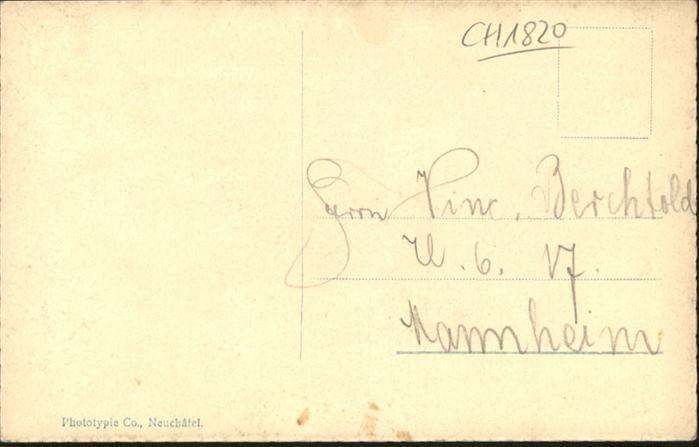 CH1820
Herrn Vinc. Berchtold
U. 6. 17.
Mannheim
Phototypie Co., Neuchâtel.